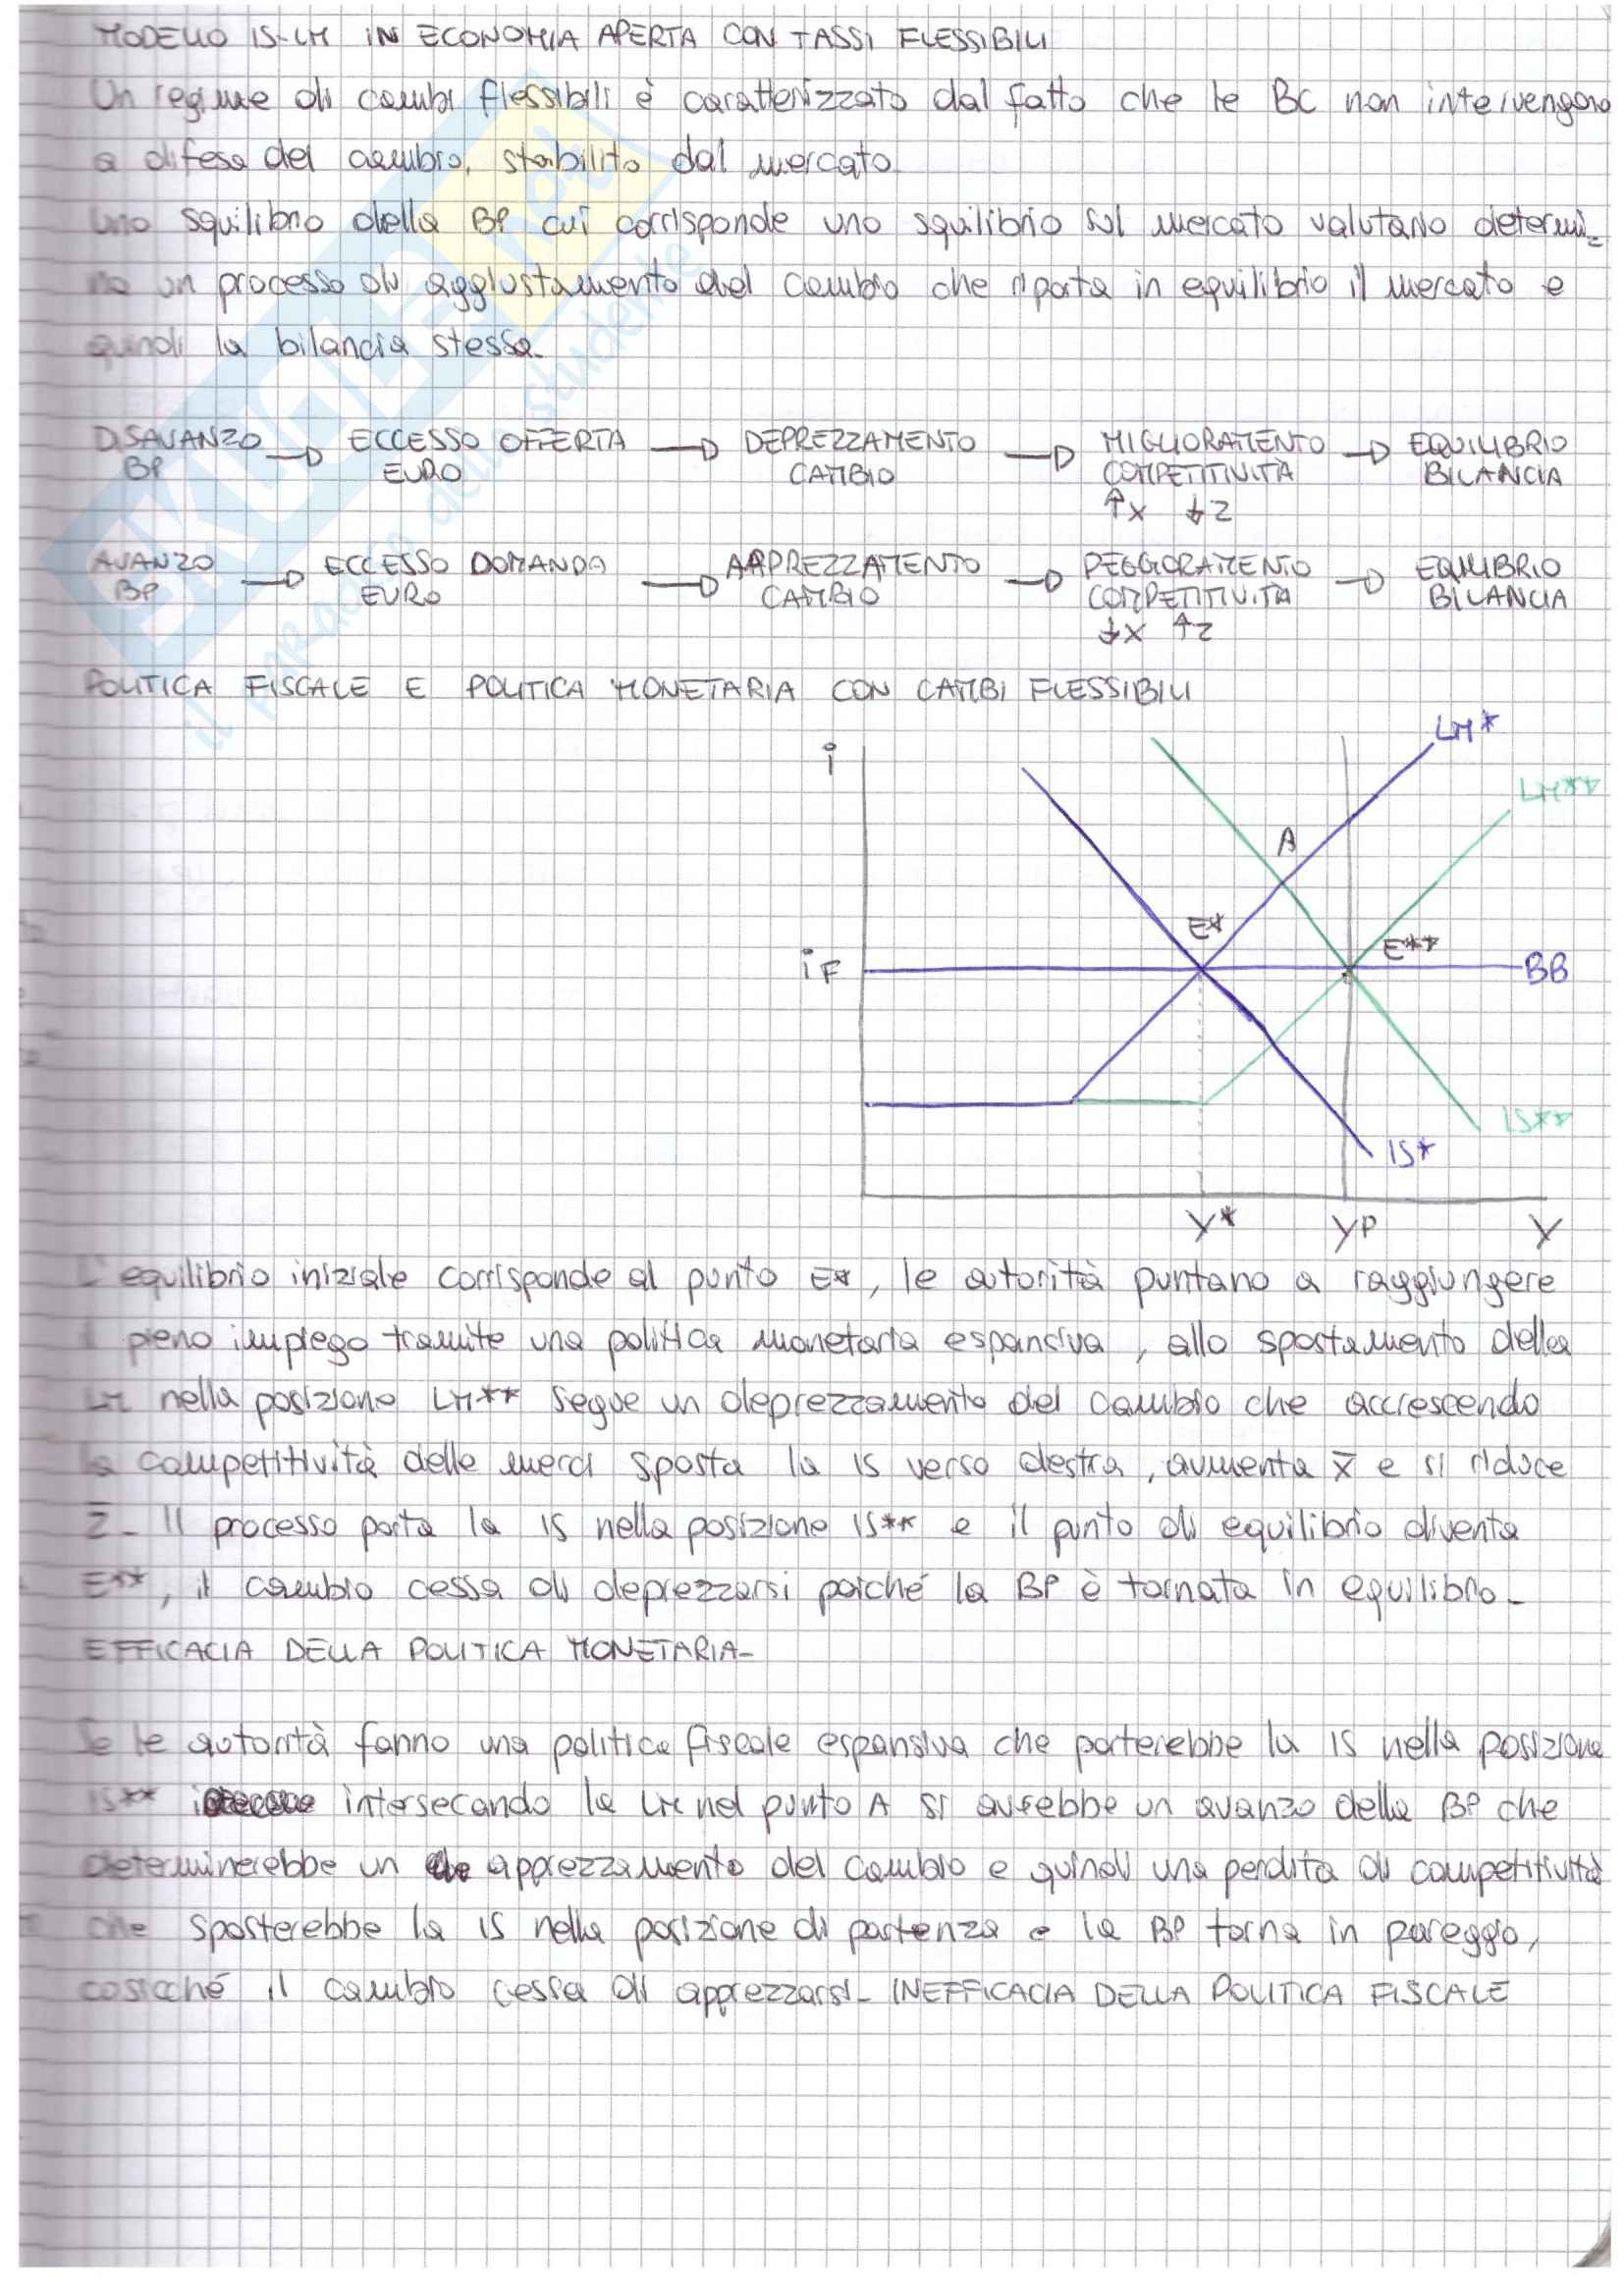 MODELLO IS-LM IN ECONOMIA APERTA CON TASSI FLESSIBILI
Un regime di cambi flessibili è caratterizzato dal fatto che le BC non intervengono
a difesa del cambio, stabilito dal mercato.
Uno squilibrio della BP cui corrisponde uno squilibrio sul mercato valutario determi=
na un processo di aggiustamento del cambio che riporta in equilibrio il mercato e
quindi la bilancia stessa.
DISAVANZO BP → ECCESSO OFFERTA EURO → DEPREZZAMENTO CAMBIO → MIGLIORAMENTO COMPETITIVITÀ → EQUILIBRIO BILANCIA
↑X ↓Z
AVANZO BP → ECCESSO DOMANDA EURO → APPREZZAMENTO CAMBIO → PEGGIORAMENTO COMPETITIVITÀ → EQUILIBRIO BILANCIA
↓X ↑Z
POLITICA FISCALE E POLITICA MONETARIA CON CAMBI FLESSIBILI
i
LM*
LM**
A
E*
E**
iF
BB
IS**
IS*
Y*
YP
Y
L'equilibrio iniziale corrisponde al punto E*, le autorità puntano a raggiungere
il pieno impiego tramite una politica monetaria espansiva, allo spostamento della
LM nella posizione LM** segue un deprezzamento del cambio che accrescendo
la competitività delle merci sposta la IS verso destra, aumenta X̅ e si riduce
Z̅. Il processo porta la IS nella posizione IS** e il punto di equilibrio diventa
E**, il cambio cessa di deprezzarsi poiché la BP è tornata in equilibrio.
EFFICACIA DELLA POLITICA MONETARIA-
Se le autorità fanno una politica fiscale espansiva che porterebbe la IS nella posizione
IS** intersecando la LM nel punto A si avrebbe un avanzo della BP che
determinerebbe un apprezzamento del cambio e quindi una perdita di competitività
che sposterebbe la IS nella posizione di partenza e la BP torna in pareggio,
cosicché il cambio cessa di apprezzarsi. INEFFICACIA DELLA POLITICA FISCALE